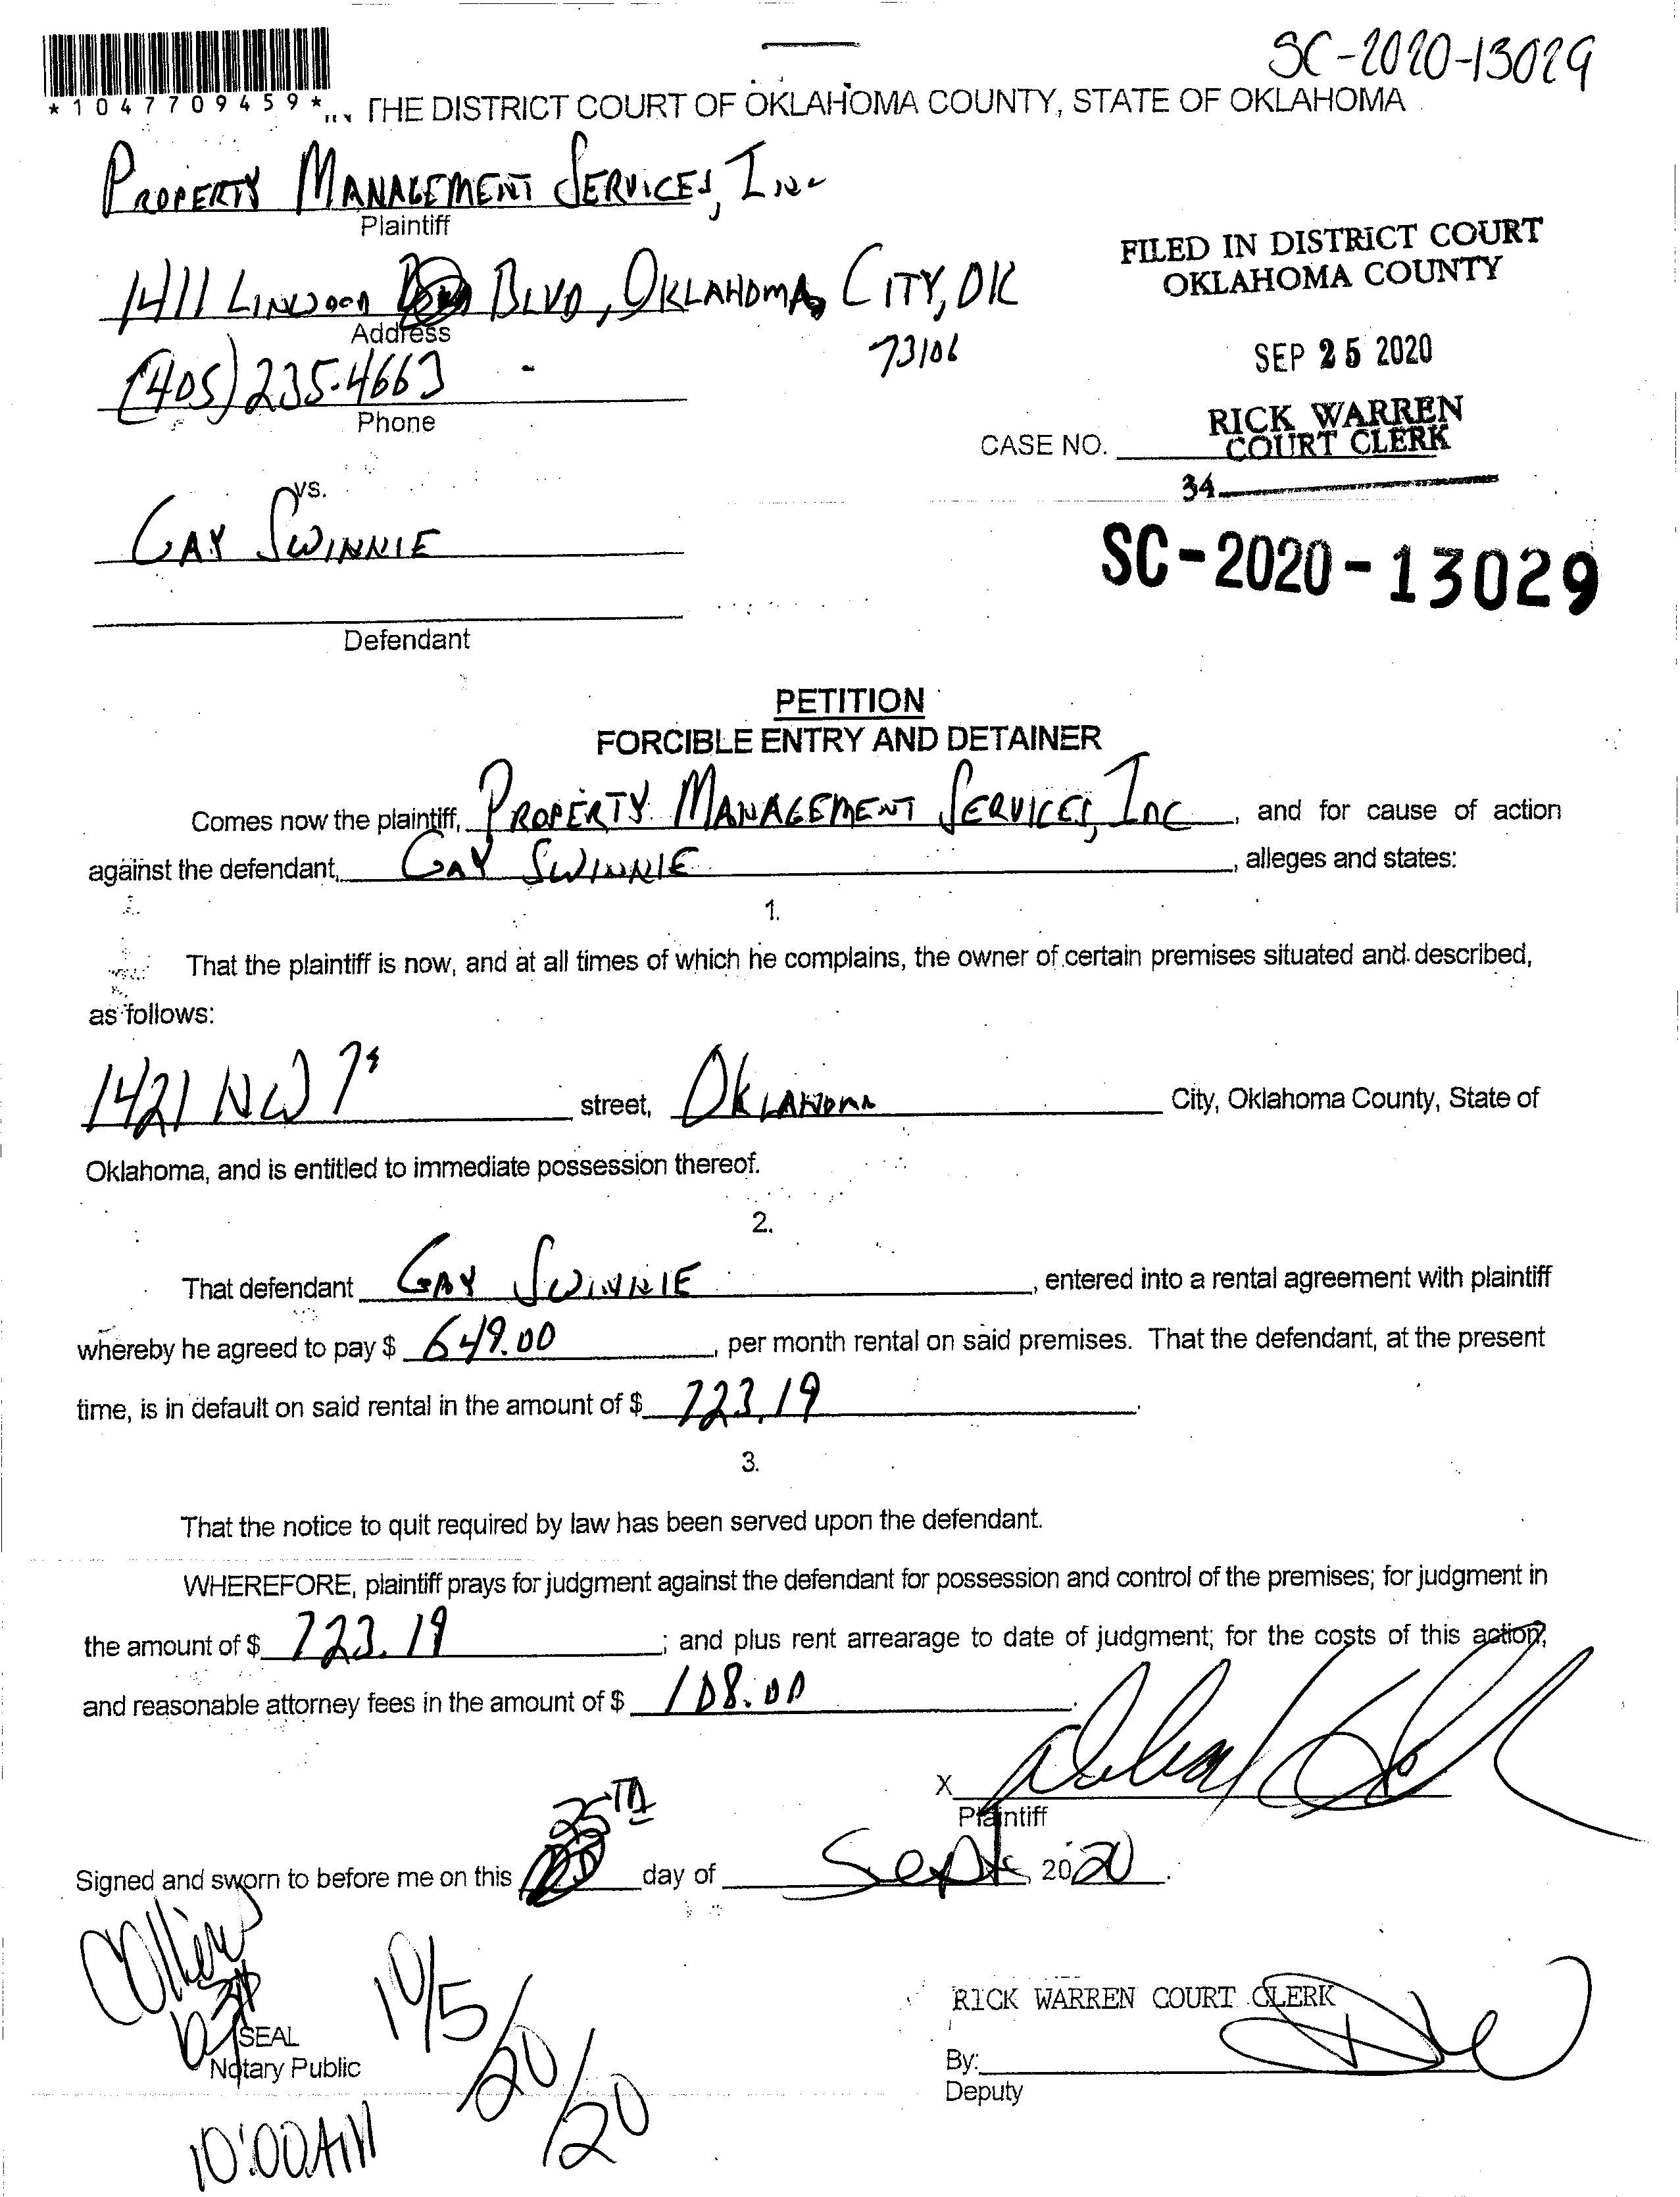 SC-2020-13029
*1047709459*
THE DISTRICT COURT OF OKLAHOMA COUNTY, STATE OF OKLAHOMA
PROPERTY MANAGEMENT SERVICES, INC
Plaintiff
1411 LINWOOD BLVD, OKLAHOMA CITY, OK
Address
73106
(405) 235-4663
Phone
FILED IN DISTRICT COURT
OKLAHOMA COUNTY
SEP 25 2020
RICK WARREN
COURT CLERK
CASE NO.
34
vs.
GAY SWINNIE
SC-2020-13029
Defendant
PETITION
FORCIBLE ENTRY AND DETAINER
Comes now the plaintiff, PROPERTY MANAGEMENT SERVICES, INC, and for cause of action
against the defendant, GAY SWINNIE, alleges and states:
1.
That the plaintiff is now, and at all times of which he complains, the owner of certain premises situated and described,
as follows:
1421 NW 7 street, OKLAHOMA City, Oklahoma County, State of
Oklahoma, and is entitled to immediate possession thereof.
2.
That defendant GAY SWINNIE, entered into a rental agreement with plaintiff
whereby he agreed to pay $ 649.00, per month rental on said premises. That the defendant, at the present
time, is in default on said rental in the amount of $ 723.19.
3.
That the notice to quit required by law has been served upon the defendant.
WHEREFORE, plaintiff prays for judgment against the defendant for possession and control of the premises; for judgment in
the amount of $ 723.19; and plus rent arrearage to date of judgment; for the costs of this action,
and reasonable attorney fees in the amount of $ 108.00.
X
Plaintiff
25TH
Signed and sworn to before me on this day of Sept, 2020.
Collins
SEAL
Notary Public
10/5/20/20
10:00AM
RICK WARREN COURT CLERK
By:
Deputy